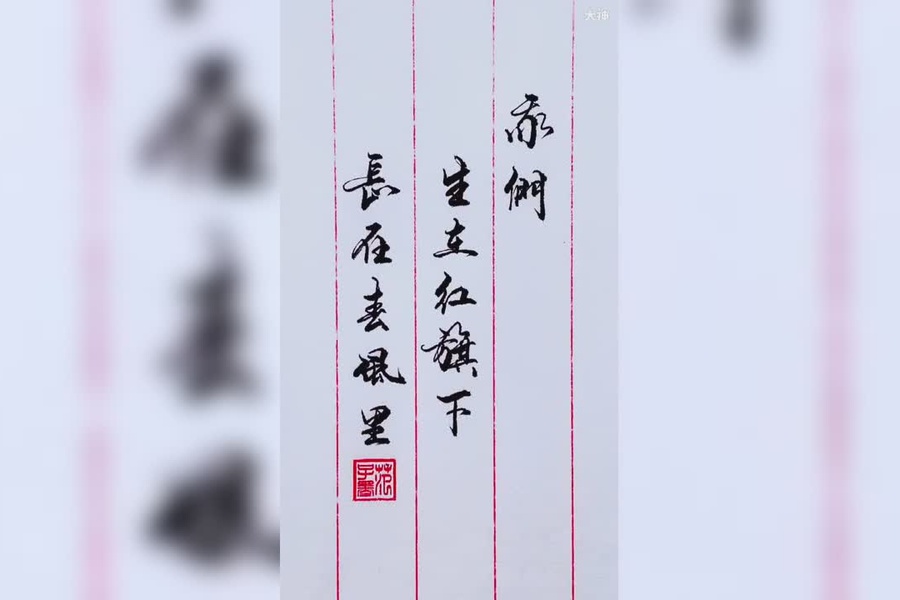 大神
我們
生在红旗下
長在春風里